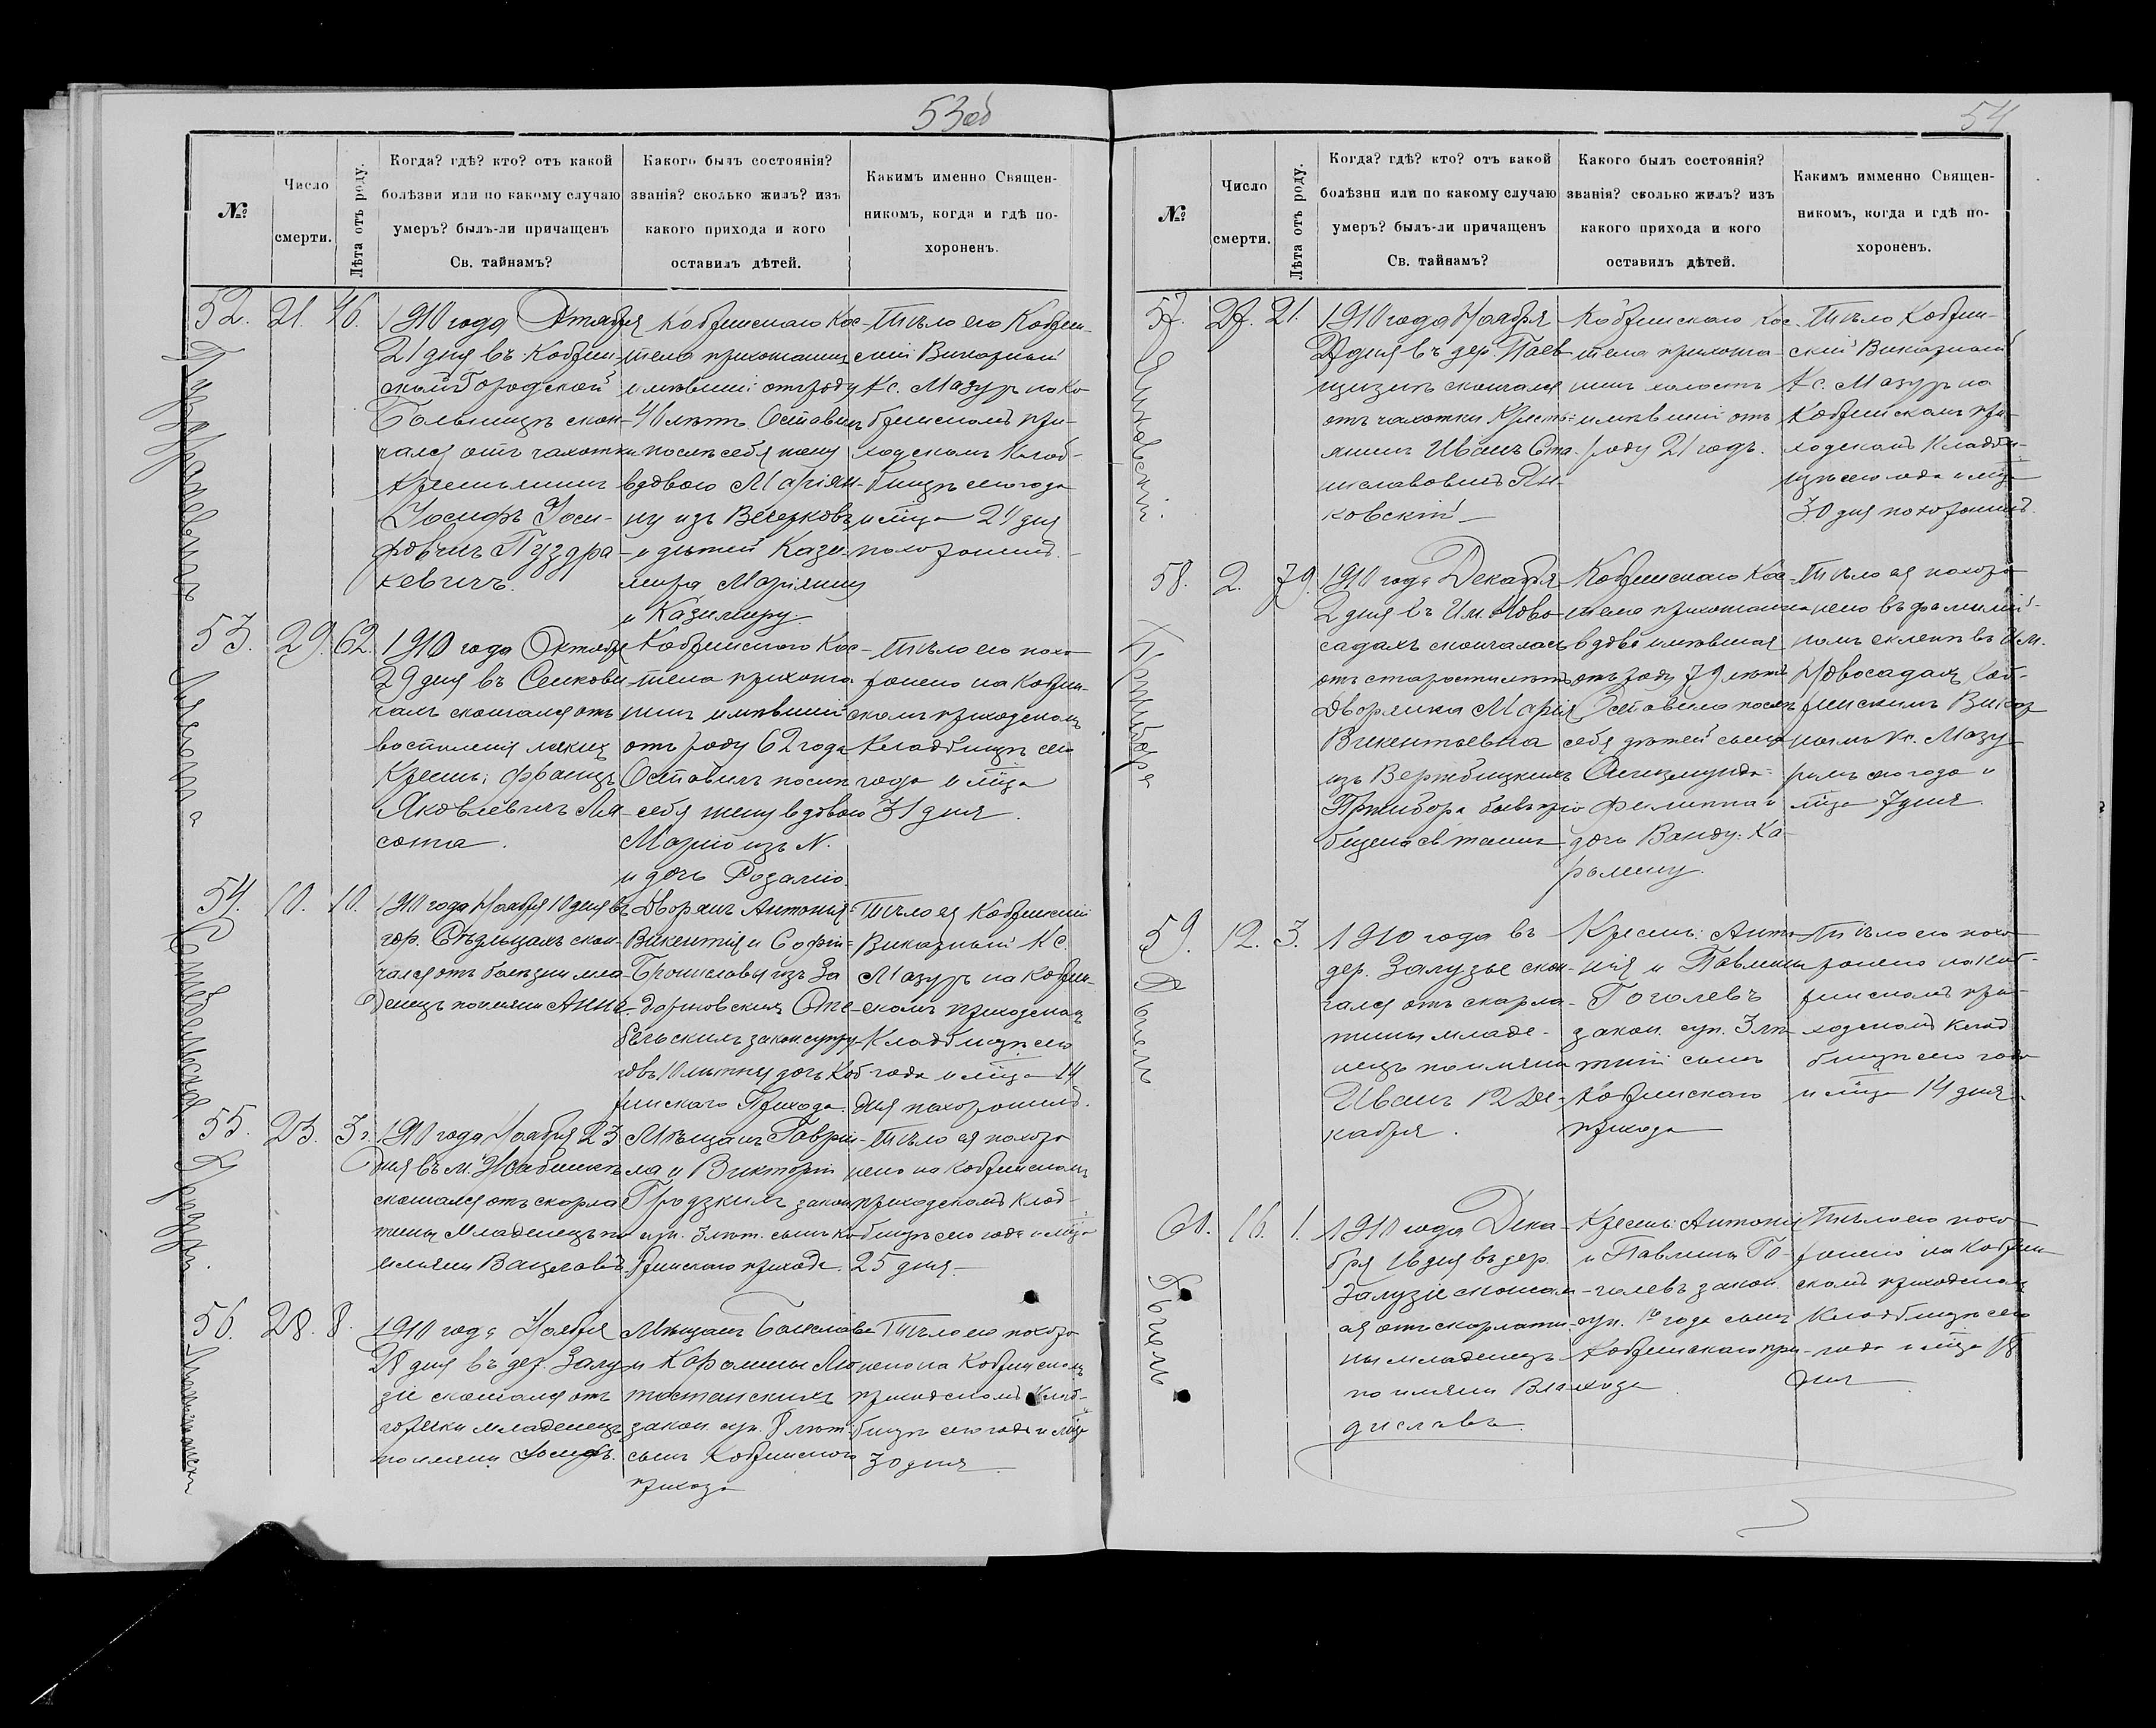 53об
№
Число смерти.
Лѣта отъ роду.
Когда? гдѣ? кто? отъ какой
болѣзни или по какому случаю
умеръ? былъ-ли причащенъ
Св. тайнамъ?
Какого былъ состоянія?
званія? сколько жилъ? изъ
какого прихода и кого
оставилъ дѣтей.
Каким именно Священ-
никомъ, когда и гдѣ по-
хороненъ.
52. 21. 46.
1910 года Октября
21 дня въ Кобрин-
ской Городской
Больницѣ скон-
чался отъ чахотки
Крестьянинъ
Іосифъ Іоси-
фовичъ Пуздра-
кевичъ.
Кобринскаго Кос-
тела прихожанинъ
имѣвшій отъ роду
46 лѣтъ Оставилъ
послѣ себя жену
вдовою Маріян-
ну изъ Вечерковъ
и дѣтей Кази-
мира Маріянну
и Казимиру.
Тѣло его Кобрин-
скій Викарный
Кс. Мазуръ на Ко
бринскомъ при-
ходскомъ Клад-
бищѣ сего года
и м̃ца 24 дня
похоронилъ.
53. 29. 62.
1910 года Октября
29 дня въ
скончался отъ
воспаленія легкихъ
Крест: Францъ
Яковлевичъ Ля
сота.
Кобринскаго Кос-
тела прихожа
нинъ имѣвшій
отъ роду 62 года
Оставилъ послѣ
себя жену вдовою
Марію изъ N.
и дочь Розалію.
Тѣло его похо
ронено на Кобрин-
скомъ приходскомъ
Кладбищѣ сего
года и м̃ца
31 дня.
Лясота
54. 10. 10.
1910 года Ноября 10 дня въ
гор. Сѣдльцахъ скон-
чался отъ болезни мла-
денецъ по имени Анна
Дворянъ Антонія-
Викентія и Софіи-
Брониславы изъ За
Сте-
бельскихъ закон супру
говъ 10 лѣтняя дочь Коб
ринскаго Прихода.
Тѣло ея Кобринскій
Викарный Кс.
Мазуръ на Кобрин-
скомъ приходскомъ
Кладбищѣ сего
года и м̃ца 14
дня похоронилъ.
55. 23. 3.
1910 года Ноября 23
дня въ м. Жабинкѣ
скончался отъ скарла
тины Младенецъ по
имени Вацлавъ.
Мѣщанъ Гаврі-
ила и Викторіи
Гродзкихъ закон
суп. 3 лѣт. сынъ Ко
бринскаго прихода.
Тѣло ея похоро
нено на Кобринскомъ
приходскомъ Клад-
бищѣ сего года и м̃ца
25 дня.
56. 28. 8.
1910 года Ноября
28 дня въ дер. Залу
зіе скончался отъ
горячки младенецъ
по имени Іосифъ.
Мѣщанъ Болеслава
и Каролины Лю
тостанскихъ
закон. суп. 8 лѣт.
сынъ Кобринскаго
прихода
Тѣло его похоро
нено на Кобринскомъ
приходскомъ Клад-
бищѣ сего года и м̃ца
30 дня
54
№
Число смерти.
Лѣта отъ роду.
Когда? гдѣ? кто? отъ какой
болѣзни или по какому случаю
умеръ? былъ-ли причащенъ
Св. тайнамъ?
Какого былъ состоянія?
званія? сколько жилъ? изъ
какого прихода и кого
оставилъ дѣтей.
Каким имменно Священ-
никомъ, когда и гдѣ по-
хороненъ.
57. 27. 21.
1910 года Ноября
27 дня въ дер.
скончался
отъ чахотки Кресть-
янинъ Иванъ Ста-
ниславовичъ Ян-
ковскій
Кобринскаго Кос
тела прихожа-
нинъ холостъ
имѣвшій отъ
роду 21 годъ.
Тѣло Кобрин-
скій Викарный
Кс. Мазуръ на
Кобринскомъ при-
ходскомъ Кладби-
щѣ сего года и м̃ца
30 дня похоронилъ.
Янковскій.
58. 2. 79.
1910 года Декабря
2 дня въ Им. Ново-
садахъ скончалась
отъ старости лѣтъ
Дворянка Марія
Викентьевна
изъ Вержбицкихъ
Пржибора бывъ прі
общена св тайнъ
Кобринскаго Кос-
тела прихожанка
вдова имѣвшая
отъ роду 79 лѣтъ
Оставила послѣ
себя дѣтей сына
Сигизмунда-
Филиппа и
дочь Ванду-Ка-
ролину.
Тѣло ея похоро
нено въ фамиль-
номъ склепѣ въ Им.
Новосадахъ Коб-
ринскимъ Викар
нымъ Кс. Мазу-
ромъ сего года и
м̃ца 7 дня.
Пржибора
59. 12. 3.
1910 года въ
дер. Залузье скон-
чался отъ скарла-
тины младе-
нецъ по имени
Иванъ 12 Де-
кабря.
Крест: Анто-
нія и Павлины
Гоголевъ
закон. суп. 3 лѣ-
тній сынъ
Кобринскаго
прихода
Тѣло его похо
ронено на Коб-
ринскомъ при-
ходскомъ Клад
бищѣ сего года
и м̃ца 14 дня.
60. 16. 1.
1910 года Дека-
бря 16 дня въ дер.
Залузіе скончал-
ся отъ скарлати-
ны младенецъ
по имени Вла-
диславъ.
Крест: Антонія
и Павлины Го-
голевъ закон.
суп. 1го года сынъ
Кобринскаго при-
хода.
Тѣло его похо
ронено на Кобрин-
скомъ приходскомъ
Кладбищѣ сего
года и м̃ца 18
дня